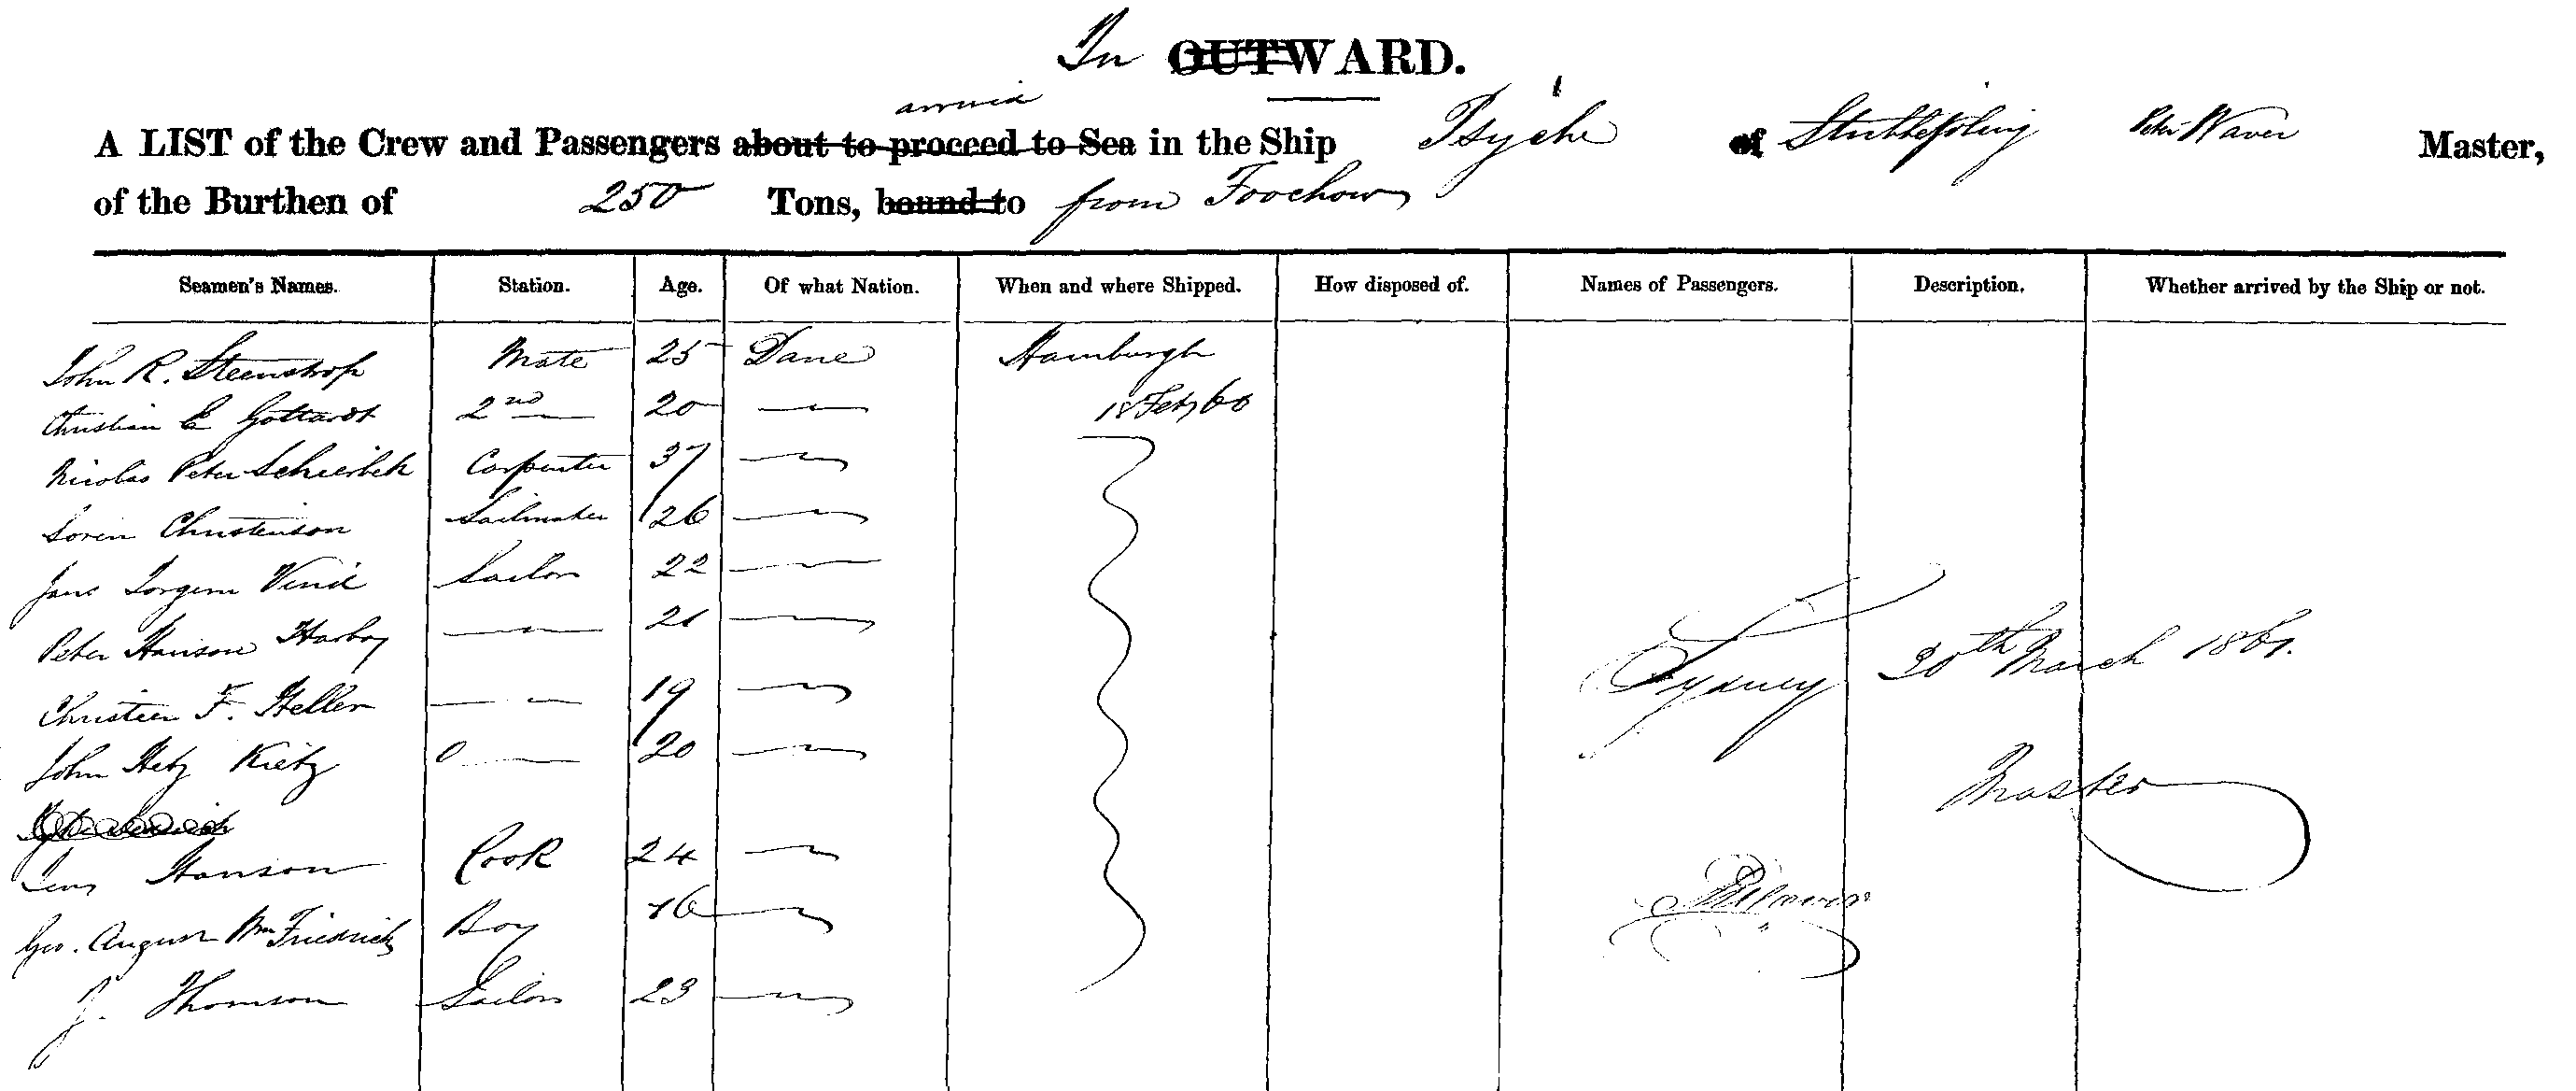 In OUTWARD.
arrived
A LIST of the Crew and Passengers about to proceed to Sea in the Ship Psyche of Stubbekobing Peter Waver Master,
of the Burthen of 250 Tons, bound to from Foochow
Seamen's Names. Station. Age. Of what Nation. When and where Shipped. How disposed of. Names of Passengers. Description. Whether arrived by the Ship or not.
John R. Steenstrop Mate 25 Dane Hamburgh
Christian E Gottardt 2nd — 20 — 18 Feby 60
Nicolas Peter Schierbek Carpenter 37 —
Soren Christenson Sailmaker 26 —
Jans Jorgen Vind Sailor 22 —
Peter Hanson Harboy — 21 —
Christian F. Heller — 19 —
John Hetz Kietz — 20 —
Jens Hanson Cook 24 —
Geo. August Wm Friedrich Boy 16 —
J. Thomson Sailor 23 —
Sydney 30th March 1861.
Master